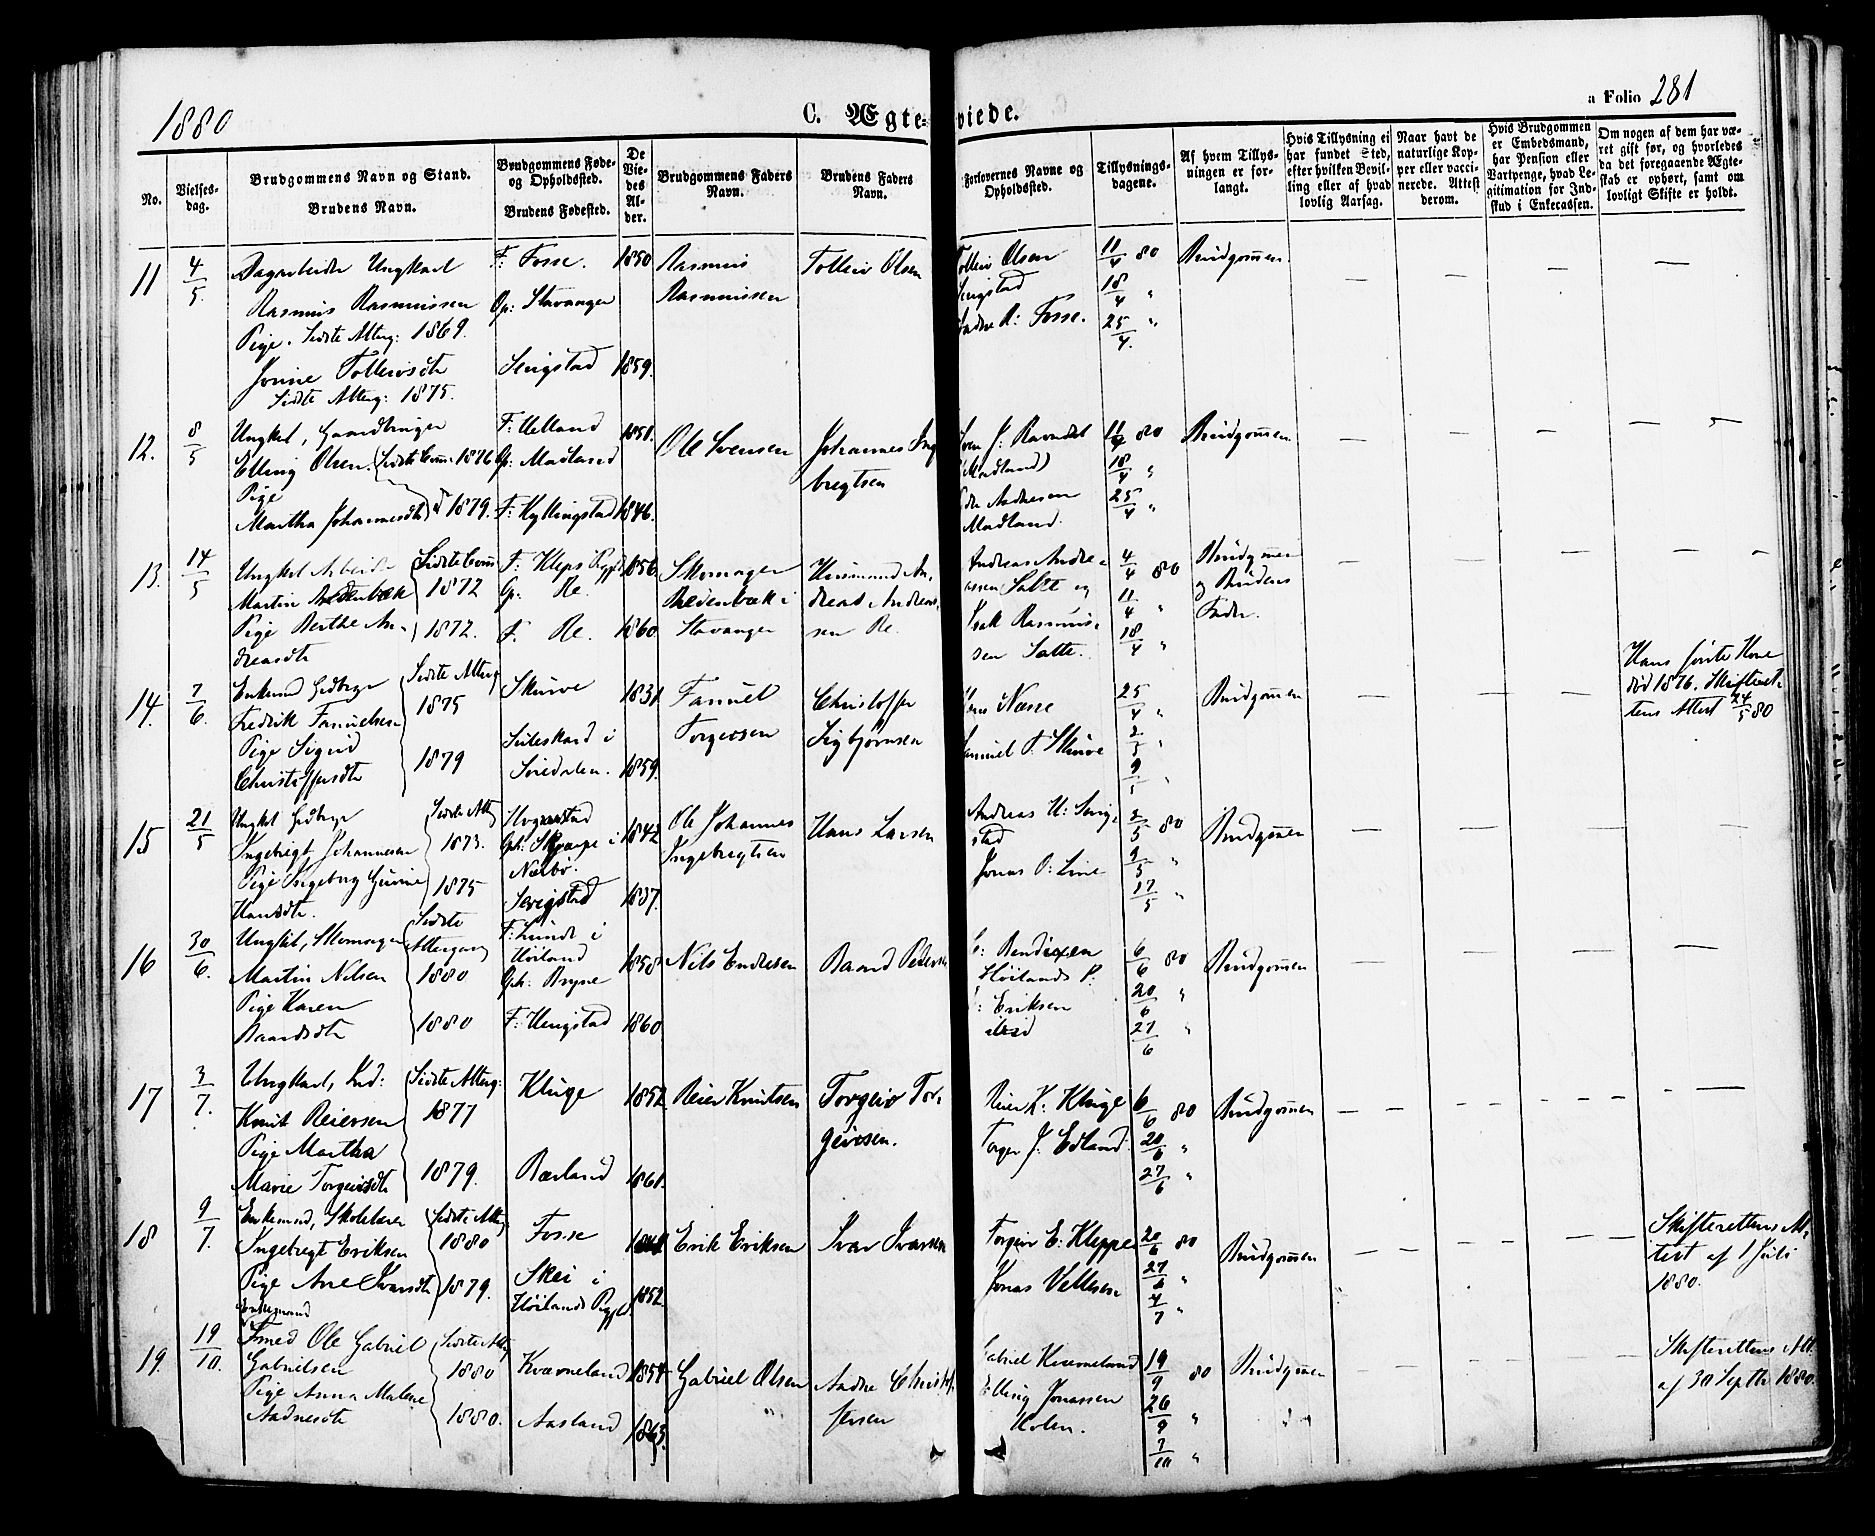 1880
C. Ægteviede.
a Folio 281
No.
Vielsesdag.
Brudgommens Navn og Stand.
Brudens Navn.
Brudgommens Føde- og Opholdsted.
Brudens Fødested.
De Viedes Alder.
Brudgommens Faders Navn.
Brudens Faders Navn.
Forlovernes Navne og Opholdsted.
Tillysningsdagene.
Af hvem Tillysningen er forlangt.
Hvis Tillysning ei har fundet Sted, efter hvilken Bevilling eller af hvad lovlig Aarsag.
Naar havt de naturlige Kopper eller vaccinerede. Attest derom.
Hvis Brudgommen er Embedsmand, har Pension eller Vartpenge, hvad Legitimation for Indskud i Enkecassen.
Om nogen af dem har været gift før, og hvorledes da det foregaaende Ægteskab er ophørt, samt om lovligt Skifte er holdt.
11
4/5.
Dagarbeider Ungkarl
Rasmus Rasmussen
Pige. Sidste Alterg: 1869.
Jorine Tolleivsdtr
Sidste Alterg: 1875.
F: Fosse.
Op: Stavanger
1850
1859.
Rasmus
Rasmussen
Tolleiv Olsen
Tolleiv Olsen
R: Fosse.
11/4 80
18/4 "
25/4. "
Brudgommen
12.
8/5
Ungkl, Gaardbruger
Elling Olsen. Sidste Comm: 1876
Pige
Martha Johannesdtr 1879.
F: Helland
Op: Madland
F: Kyllingstad
1851.
1846.
Ole Svensen
Johannes Ingbregtsen
J: Ravndal
(Madland)
Madland.
11/4 80
18/4 "
25/4 "
Brudgommen
13.
14/5
Ungkl Arbeider
Martin Bredenbæk
Pige Berthe Andreasdtr
Sidste Comm
1872
1872.
F. Kleps Pgjld
Op: Re.
F. Re.
1856
1860
Skomager
Bredenbæk i
Stavanger
Andreas Andreassen Re.
Andreas Andreassen Salte og
Isak Rasmussen Salte.
4/4 80
11/4 "
18/4 "
Brudgommen
og Brudens
Fader.
14.
7/6
Enkemd Gedbryr
Fredrik Fanuelsen
Pige Sigrid
Christoffersdtr
Sidste Alterg
1875
1879
Skurve
Suleskard i
Siredalen.
1831
1859.
Fanuel
Torgersen
Christoffer
Sigbjørnsen
Næsse
F. Skurve
25/4 "
2/5 "
9/5 "
Brudgommen
Hans første Kone
død 1876. Skifterettens Attest 24/5 80
15
21/5
Ungkl Gedbryr
Ingebregt Johannesen
Pige Ingeborg Gurine
Hansdtr.
Sidste Alterg
1873.
1875
Hognestad
Oph: Skjærpe i
Nærbø.
Serigstad
1842
1837.
Ole Johannes
Ingebregtsen
Hans Larsen
Andreas H: Serigstad
Jonas O: Line
2/5 80
9/5 "
17/5 "
Brudgommen
16
30/6.
Ungkl, Skomager
Martin Nilsen
Pige Karen
Baardsdtr
Sidste
Altergang
1880
1880
F: Lunde i
Høiland
Oph: Bryne
F: Hengstad
1858
1860
Nils Endresen
Baard Pedersen
Bendixen
Høilands P:
Eriksen
ibid
6/6 80
20/6 "
27/6 "
Brudgommen
17
3/7.
Ungkarl, Grd:
Knut Reiersen
Pige Martha
Marie Torgeirsdtr
Sidste Alterg:
1877
1879.
Kluge
Bærland
1852
1861.
Reier Knutsen
Torgeir Torgeirsen.
Reier K: Kluge
Torger J: Edland.
6/6 80
20/6 "
27/6 "
Brudgommen
18
9/7.
Enkemd, Skolelærer
Ingebregt Eriksen
Pige Ane Ivarsdtr
Sidste Alterg
1880
1879.
Fosse
Skei i
Høilands Pgjld
1852.
Erik Eriksen
Ivar Ivarsen
Torgeir E: Kleppe
Jonas Vallesen
20/6 80
27/6 "
4/7 "
Brudgommen
Skifterettens Attest af 1 Juli
1880.
19.
19/10.
Enkemand
Smed Ole Gabriel
Gabrielsen
Pige Anna Malene
Andresdtr
Sidste Alterg
1880
1880.
Kverneland
Aasland
1854
1863.
Gabriel Olsen
Andre Christoffersen
Gabriel Kverneland
Elling Jonassen
Holen.
19/9 80
26/9 "
3/10 "
Brudgommen
Skifterettens Att.
af 30 Septbr 1880.